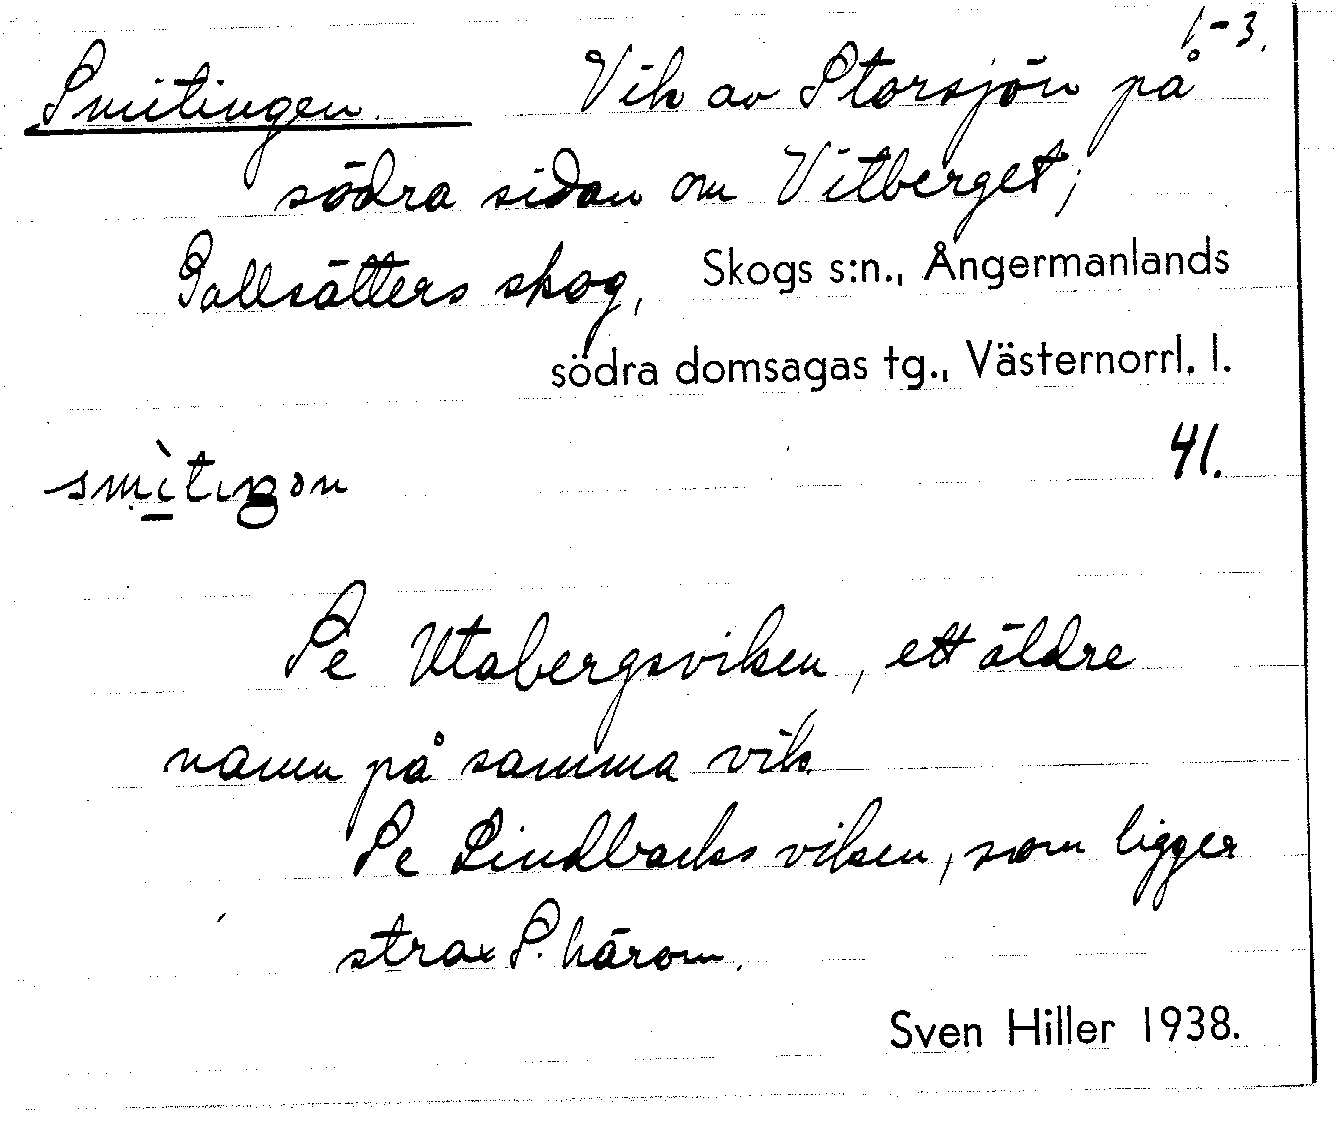 1-3.
Smitingen. Vik av Storsjön på
södra sidan om Vitberget;
Gallsätters skog, Skogs s:n., Ångermanlands
södra domsagas tg., Västernorrl. l.
41.
Se Utabergsviken, ett äldre
namn på samma vik.
Se Lindbacksviken, som ligger
strax S. härom.
Sven Hiller 1938.